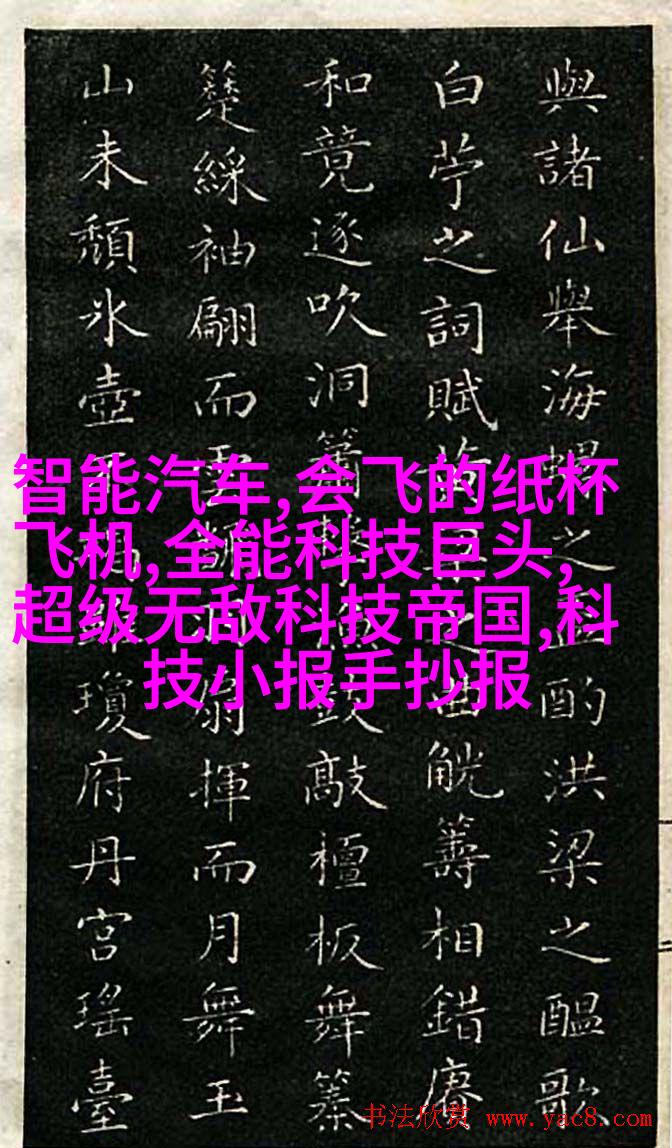 與諸仙舉海螺之酌洪梁之醖歌
白苧之詞賦之曲觥籌相錯賡
和竟逐吹洞簫鼓敲檀板舞
綵袖翩而雲扇揮而月舞玉
山未頹氷壺瓊府丹宮瑤臺
智能汽车,会飞的纸杯
飞机,全能科技巨头,
超级无敌科技帝国,科
技小报手抄报
书法欣赏 www.yac8.com